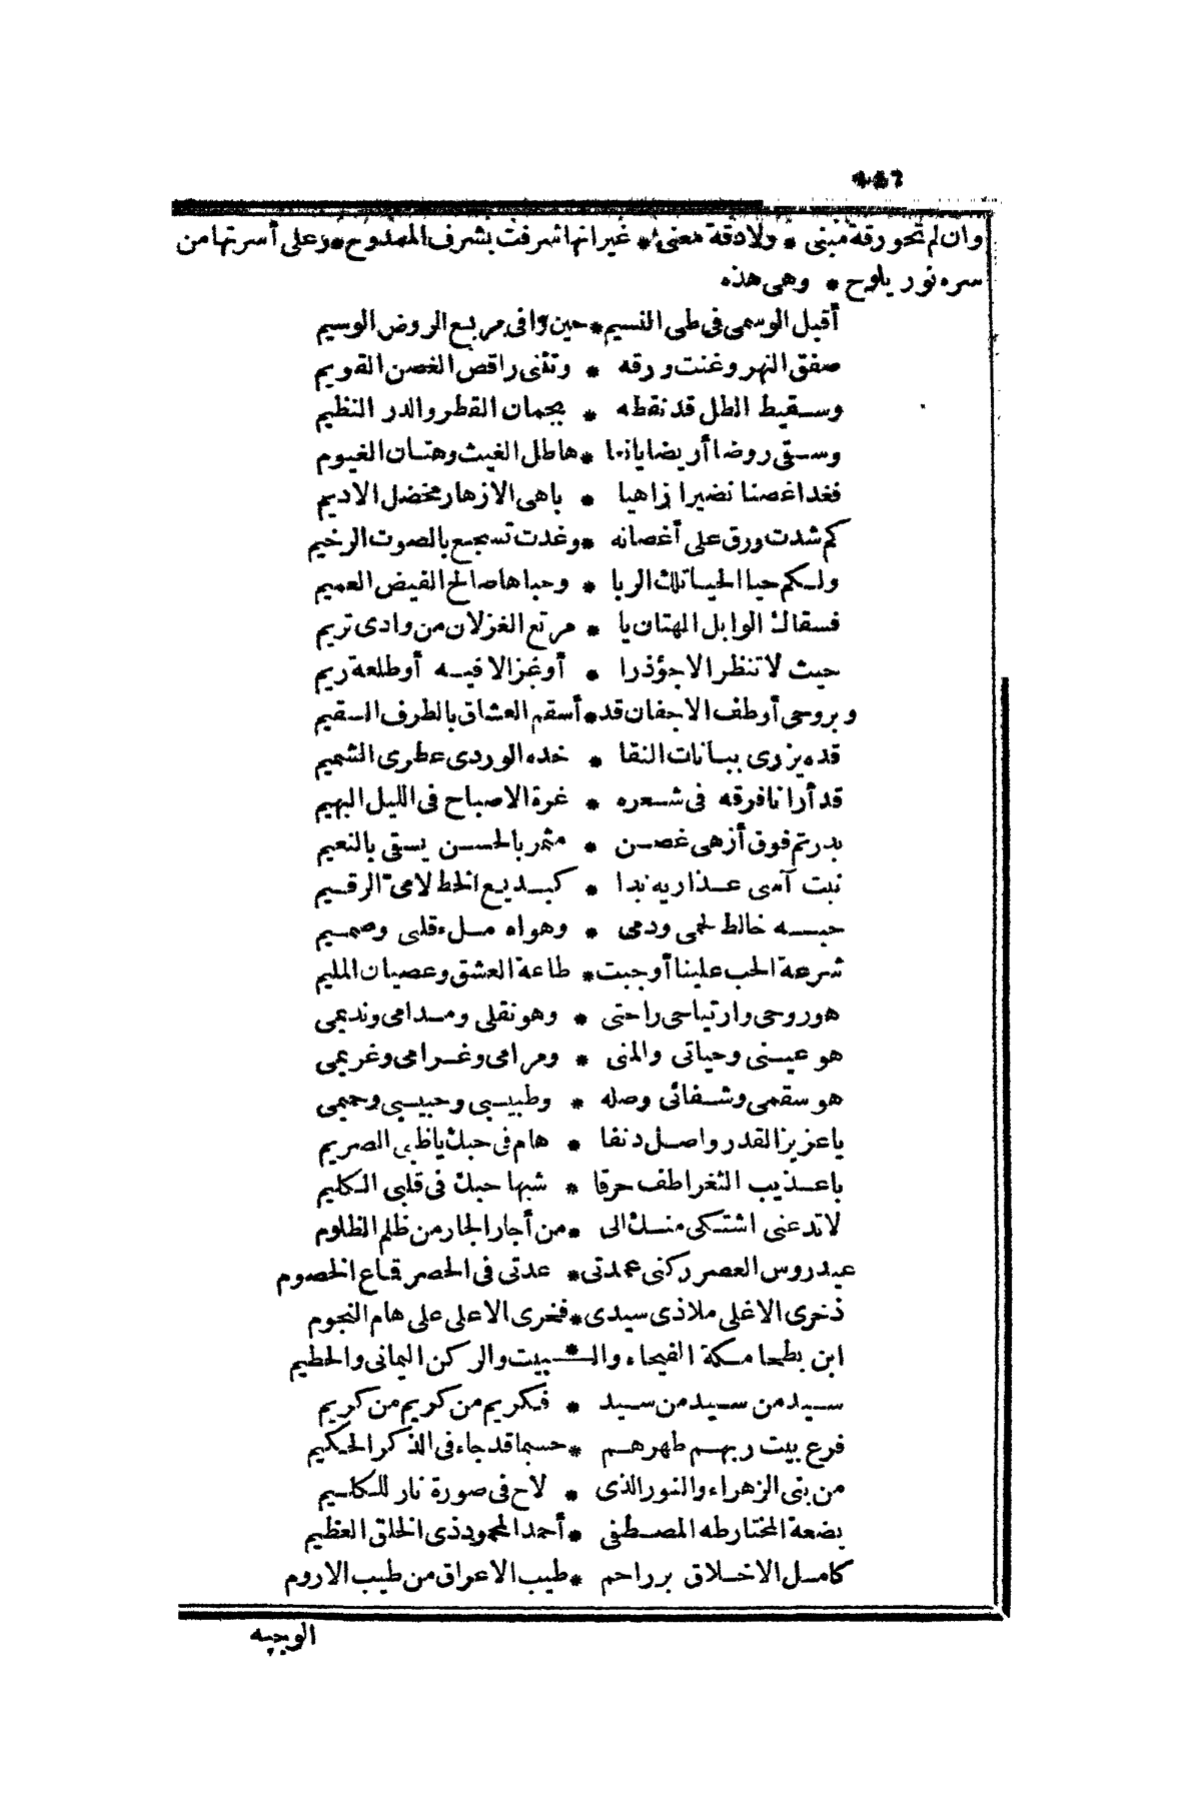 وان لم تحورقة مبنى * ولادقة معنى * غيرانها شرفت بشرف الممدوح * وعلى أسرتها من
سره نور يلوح * وهى هذه
أقبل الوسمى فى طى النسيم * حين وافى مربع الروض الوسيم
صفق النهر وغنت ورقه * وتثنى راقص الغصن القويم
وسقيط الطل قد نقطه * بجمان القطر والدر النظيم
وسقى روضا أريضا يانعا * هاطل الغيث وهتان الغيوم
فغدا غصنا نضيرا زاهيا * باهى الازهار مخضل الاديم
كم شدت ورق على أغصانه * وغدت تسجع بالصوت الرخيم
ولكم حيا الحيا تلك الربا * وحباها صالح الفيض العميم
فسقاك الوابل الهتان يا * مرتع الغزلان من وادى تريم
حيث لا تنظر الا جؤذرا * أو غزالا فيه أو طلعة ريم
وبروحى أوطف الاجفان قد * أسقم العشاق بالطرف السقيم
قده يزرى ببانات النقا * خده الوردى عطرى الشميم
قد أرانا فرقه فى شعره * غرة الاصباح فى الليل البهيم
بدر تم فوق أزهى غصن * مثمر بالحسن يسقى بالنعيم
نبت آسى عذاريه بدا * كبديع الخط لامى الرقيم
حبه خالط لحمى ودمى * وهواه ملء قلبى وصميم
شرعة الحب علينا أوجبت * طاعة العشق وعصيان المليم
هو روحى وارتياحى راحتى * وهو نقلى ومدامى ونديمى
هو عينى وحياتى والمنى * ومرامى وغرامى وغريمى
هو سقمى وشفائى وصله * وطبيبى وحبيبى وحميمى
يا عزيز القدر واصل دنفا * هام فى حبك يا ظبى الصريم
يا عذيب الثغر اطف حرقا * شبها حبك فى قلبى الكليم
لا تدعنى اشتكى منك الى * من أجار الجار من ظلم الظلوم
عيدروس العصر ركنى عمدتى * عدتى فى الحصر قاع الخصوم
ذخرى الاغلى ملاذى سيدى * فخرى الاعلى على هام النجوم
ابن بطحا مكة الفيحاء والـ * ـبيت والركن اليمانى والحطيم
سيد من سيد من سيد * فكريم من كريم من كريم
فرع بيت ربهم طهرهم * حسبما قد جاء فى الذكر الحكيم
من بنى الزهراء والنور الذى * لاح فى صورة نار للكليم
بضعة المختار طه المصطفى * أحمد المحمود ذى الخلق العظيم
كامل الاخلاق بر راحم * طيب الاعراق من طيب الاروم
الوجيه